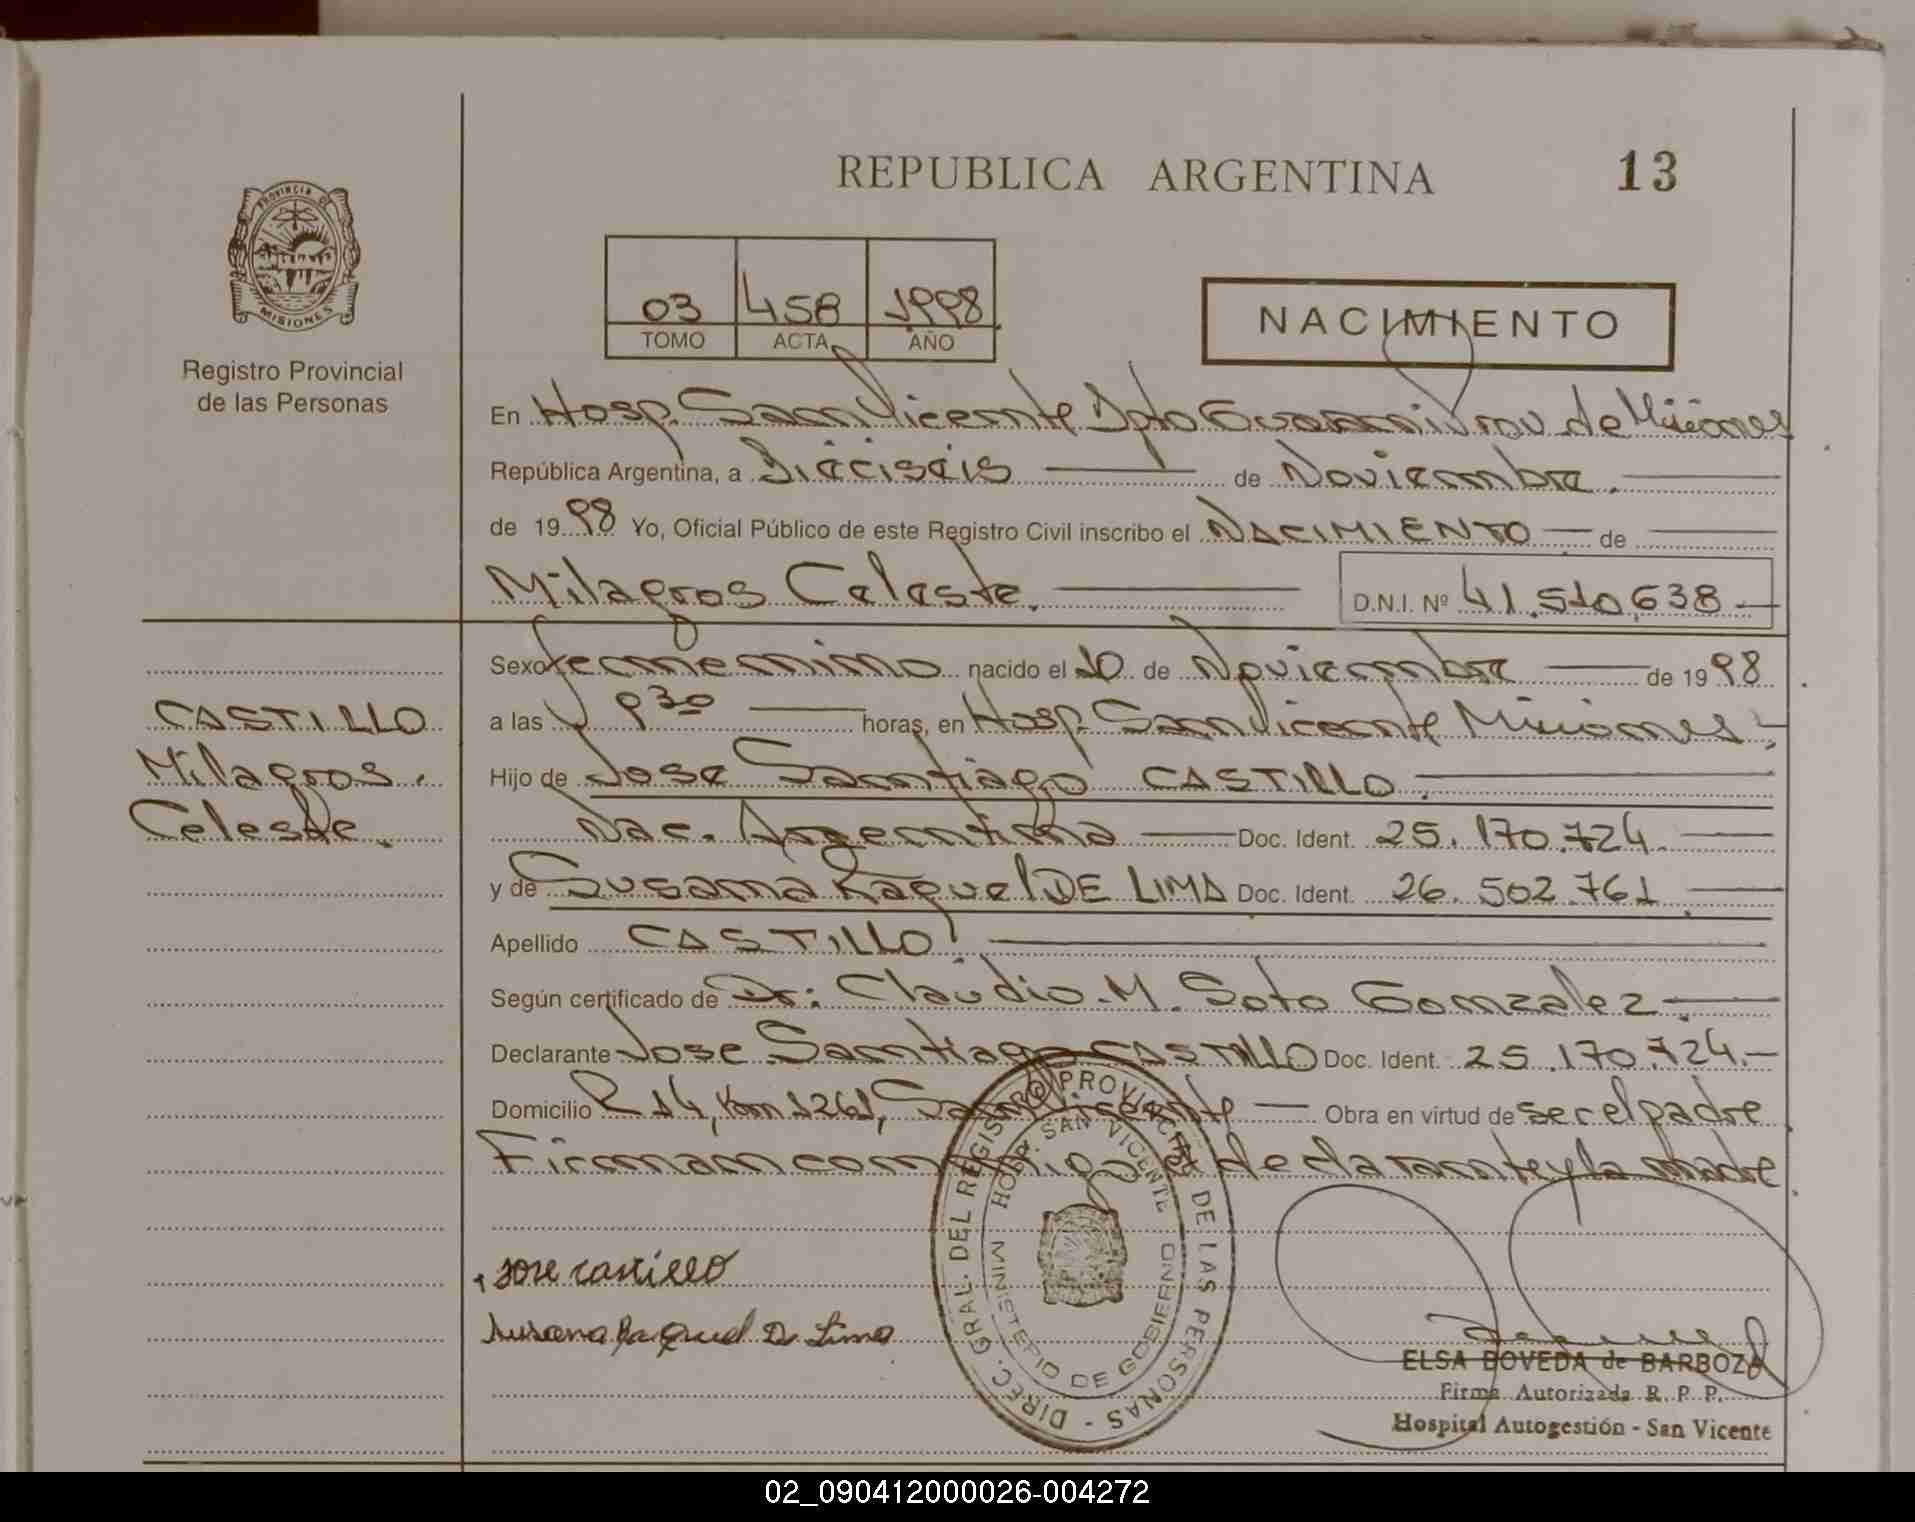 REPUBLICA ARGENTINA
13
PROVINCIA DE
MISIONES
Registro Provincial
de las Personas
03 458 1998
TOMO ACTA AÑO
NACIMIENTO
En Hosp. San Vicente Dpto Guarani Prov. de Misiones
República Argentina, a Dieciseis de Noviembre.
de 1998 Yo, Oficial Público de este Registro Civil inscribo el NACIMIENTO de
Milagros Celeste. D.N.I. Nº 41.510.638
Sexo femenino nacido el 10 de Noviembre de 1998
a las 9 30 horas, en Hosp. San Vicente Misiones
Hijo de Jose Santiago CASTILLO.
Nac. Argentina Doc. Ident. 25.170.724.
y de Susana Raquel DE LIMA Doc. Ident. 26.502.761
Apellido CASTILLO
Según certificado de Dr: Claudio. M. Soto Gonzalez
Declarante Jose Santiago CASTILLO Doc. Ident. 25.170.724.
Domicilio R 14, Km 1261, San Vicente Obra en virtud de ser el padre
Firman conmigo el declarante y la madre
CASTILLO
Milagros.
Celeste.
Jose Castillo
Susana Raquel De Lima
DIREC. GRAL. DEL REGISTRO PROVINCIAL DE LAS PERSONAS -
HOSP. SAN VICENTE
MINISTERIO DE GOBIERNO
ELSA BOVEDA de BARBOZA
Firma Autorizada R. P. P.
Hospital Autogestión - San Vicente
02_090412000026-004272